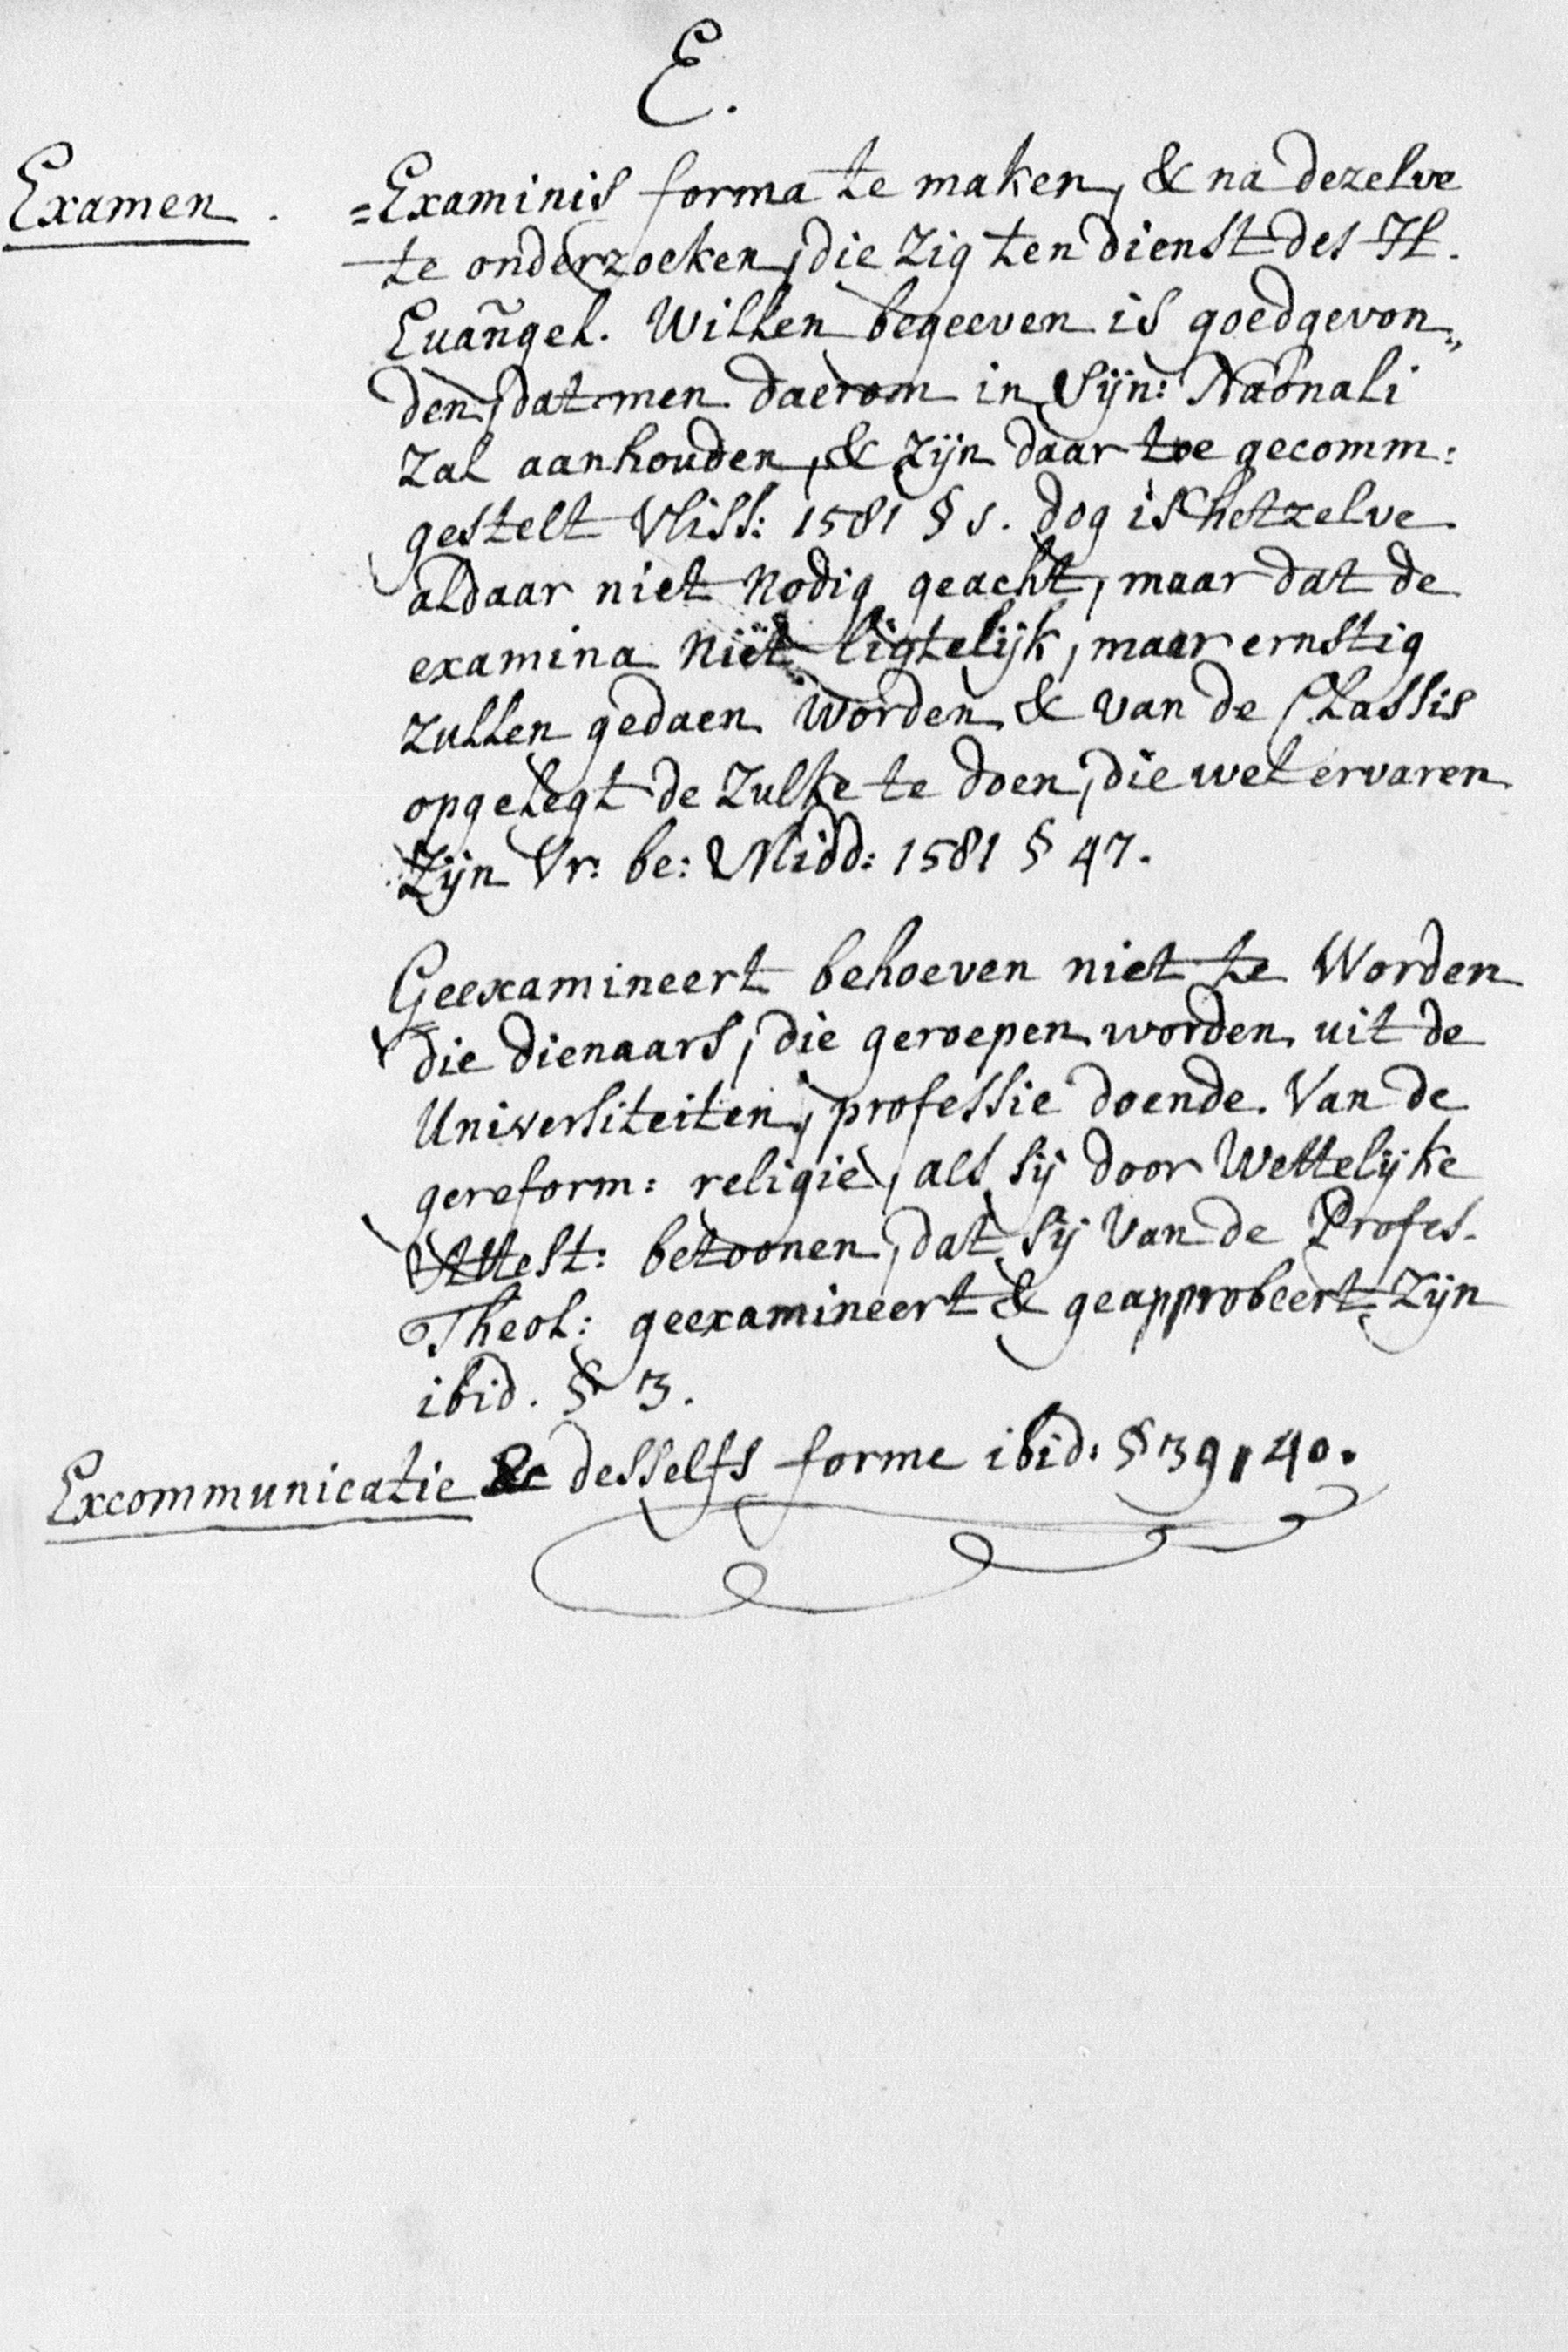 E.
Examen. =Examinis forma te maken, & na dezelve
te onderzoeken, die zig ten dienst des H.
Euañgel. Willen begeeven is goedgevon„
den, dat men daerom in Sijn: Naõnali
Zal aanhouden, & zijn daar toe gecomm:
gestelt Vliss: 1581 § 1. dog is hetzelve
aldaar niet nodig geacht, maar dat de
examina niet ligtelijk, maar ernstig
zullen gedaen worden & van de Classis
opgelegt de zulke te doen, die wel ervaren
Zijn Vr: be: Midd: 1581 § 47.
Geexamineert behoeven niet te Worden
die dienaars, die geroepen worden uit de
Universiteiten, professie doende. Van de
gereform: religie, als sij door Wettelijke
Attest: betoonen, dat sij Van de Profes.
Theol: geexamineert & geapprobeert Zijn
ibid. § 3.
Excommunicatie & desselfs forme ibid: § 39, 40.